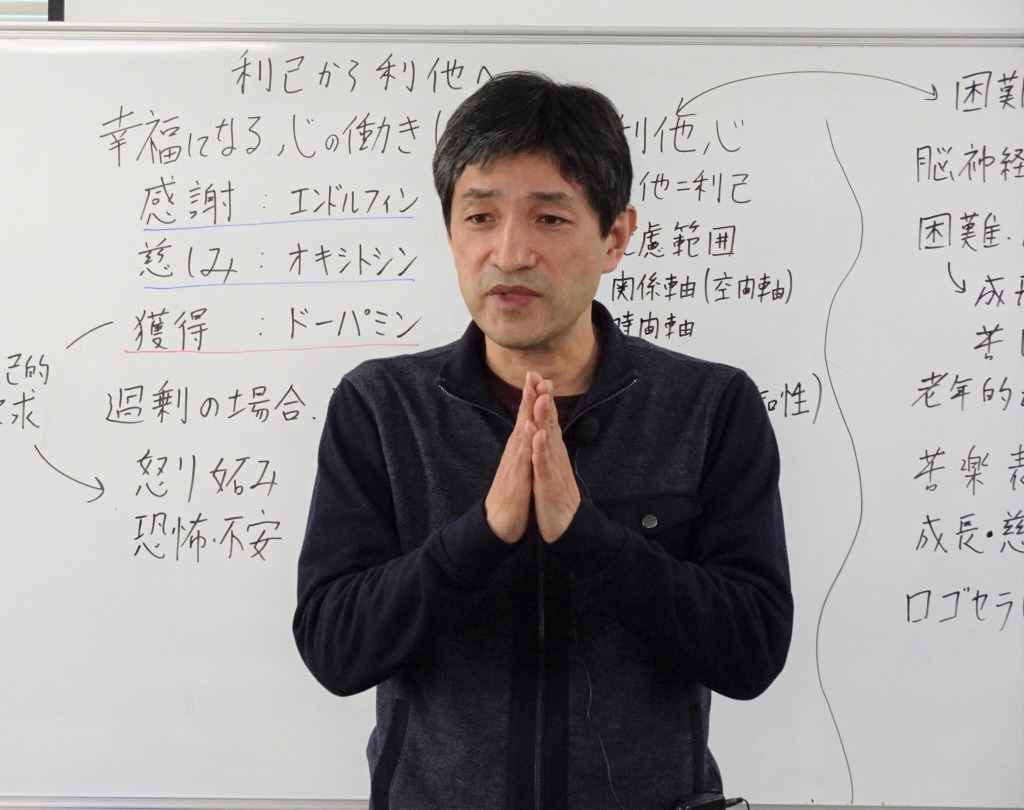 利己から利他へ
幸福になる心の働き(
感謝：エンドルフィン
慈しみ：オキシトシン
獲得：ドーパミン
過剰の場合
怒り 妬み
恐怖・不安
己的
求
利他心
他＝利己
慮範囲
関係軸(空間軸)
時間軸
性)
困難
脳神経
困難
成長
苦
老年的
苦楽
成長・慈
ロゴセラ